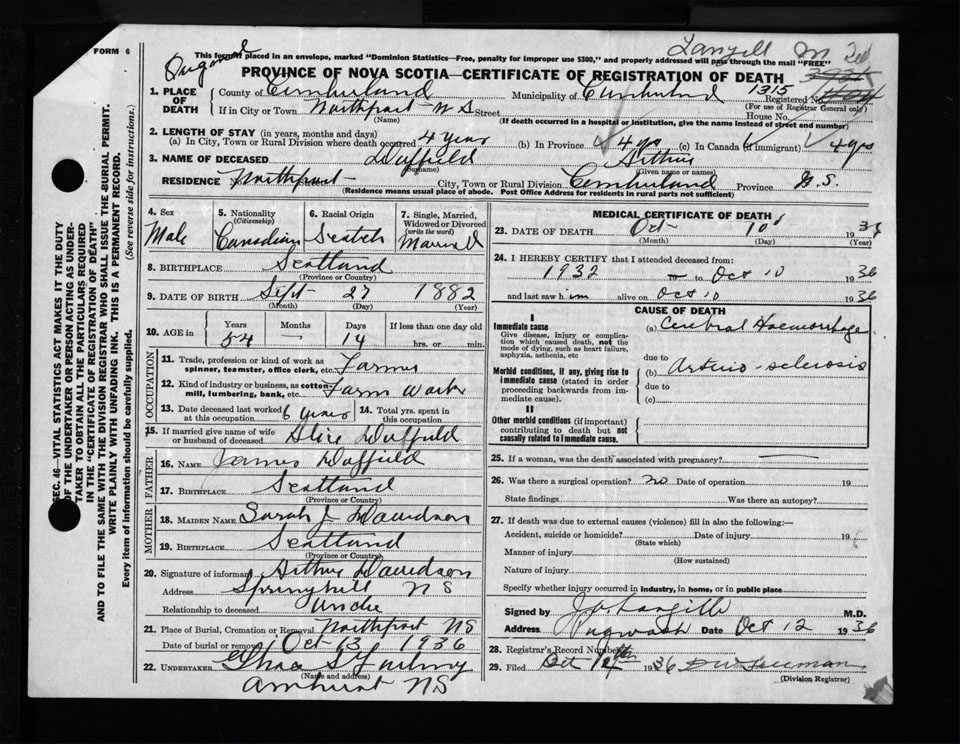 FORM 6
Langill M
This form, if placed in an envelope, marked "Dominion Statistics—Free, penalty for improper use $300," and properly addressed will pass through the mail "FREE"
PROVINCE OF NOVA SCOTIA—CERTIFICATE OF REGISTRATION OF DEATH
1. PLACE OF DEATH
County of Cumberland Municipality of Cumberland 1315 Registered No.
(For use of Registrar General only)
If in City or Town Northport N S Street House No.
(Name) (If death occurred in a hospital or institution, give the name instead of street and number)
2. LENGTH OF STAY (in years, months and days)
(a) In City, Town or Rural Division where death occurred 4 years (b) In Province 4 yrs (c) In Canada (if immigrant) 4 yrs
3. NAME OF DECEASED Duffield Arthur
(Surname) (Given name or names)
RESIDENCE Northport Street City, Town or Rural Division Cumberland Province N.S.
(Residence means usual place of abode. Post Office Address for residents in rural parts not sufficient)
4. Sex Male
5. Nationality (Citizenship) Canadian
6. Racial Origin Scotch
7. Single, Married, Widowed or Divorced (write the word) Married
8. BIRTHPLACE Scotland
(Province or Country)
9. DATE OF BIRTH Sept 27 1882
(Month) (Day) (Year)
10. AGE in Years Months Days If less than one day old
54 — 14 hrs. or min.
OCCUPATION
11. Trade, profession or kind of work as spinner, teamster, office clerk, etc. Farmer
12. Kind of industry or business, as cotton-mill, lumbering, bank, etc. Farm Work
13. Date deceased last worked at this occupation 6 years 14. Total yrs. spent in this occupation
15. If married give name of wife or husband of deceased Alice Duffield
FATHER
16. NAME James Duffield
17. BIRTHPLACE Scotland
(Province or Country)
MOTHER
18. MAIDEN NAME Sarah J Davidson
19. BIRTHPLACE Scotland
(Province or Country)
20. Signature of informant Arthur Davidson
Address Springhill N S
Relationship to deceased Uncle
21. Place of Burial, Cremation or Removal Northport NS
Date of burial or removal Oct 13 1936
22. UNDERTAKER
(Name and address)
Amherst NS
MEDICAL CERTIFICATE OF DEATH
23. DATE OF DEATH Oct 10 1936
(Month) (Day) (Year)
24. I HEREBY CERTIFY that I attended deceased from:
1932 to Oct 10 1936
and last saw him alive on Oct 10 1936
CAUSE OF DEATH
I
Immediate cause
Give disease, injury or complication which caused death, not the mode of dying, such as heart failure, asphyxia, asthenia, etc
(a) Cerebral Haemorrhage
due to
Morbid conditions, if any, giving rise to immediate cause (stated in order proceeding backwards from immediate cause).
(b) Arterio-sclerosis
due to
(c)
II
Other morbid conditions (if important) contributing to death but not causally related to immediate cause.
25. If a woman, was the death associated with pregnancy?
26. Was there a surgical operation? no Date of operation 19
State findings Was there an autopsy?
27. If death was due to external causes (violence) fill in also the following:—
Accident, suicide or homicide? Date of injury 19
(State which)
Manner of injury
(How sustained)
Nature of injury
Specify whether injury occurred in industry, in home, or in public place
Signed by M.D.
Address Pugwash Date Oct 12 1936
28. Registrar's Record Number
29. Filed Oct 1936
(Division Registrar)
SEC. 46—VITAL STATISTICS ACT MAKES IT THE DUTY
OF THE UNDERTAKER OR PERSON ACTING AS UNDER-
TAKER TO OBTAIN ALL THE PARTICULARS REQUIRED
IN THE "CERTIFICATE OF REGISTRATION OF DEATH"
AND TO FILE THE SAME WITH THE DIVISION REGISTRAR WHO SHALL ISSUE THE BURIAL PERMIT.
WRITE PLAINLY WITH UNFADING INK. THIS IS A PERMANENT RECORD.
Every item of information should be carefully supplied. (See reverse side for instructions.)